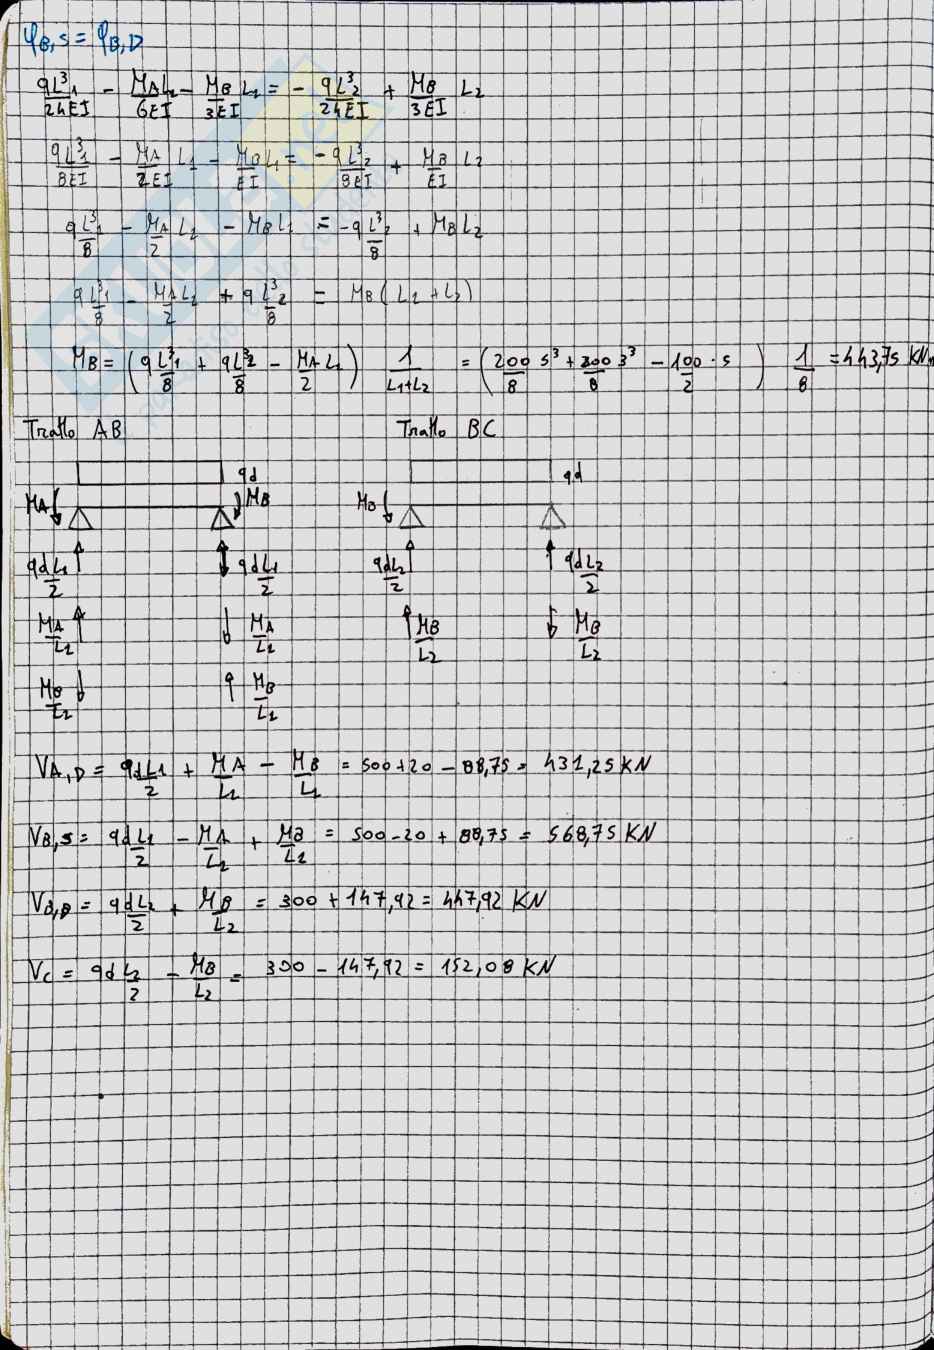 φB,S = φB,D
qL1³/24EI - MAL1/6EI - MB/3EI L1 = - qL2³/24EI + MB/3EI L2
qL1³/8EI - MA/2EI L1 - MBL1/EI = - qL2³/8EI + MB/EI L2
qL1³/8 - MA/2 L1 - MBL1 = -qL2³/8 + MBL2
qL1³/8 - MAL1/2 + qL2³/8 = MB(L1+L2)
MB = (qL1³/8 + qL2³/8 - MAL1/2) 1/L1+L2 = (200/8 5³ + 200/8 3³ - 100/2 · 5) 1/8 = 443,75 KNm
Tratto AB Tratto BC
qd qd
MA MB MB
qdL1/2 qdL1/2 qdL2/2 qdL2/2
MA/L1 MA/L1 MB/L2 MB/L2
MB/L1 MB/L1
VA,D = qdL1/2 + MA/L1 - MB/L1 = 500+20 - 88,75 = 431,25 KN
VB,S = qdL1/2 - MA/L1 + MB/L1 = 500-20 + 88,75 = 568,75 KN
VB,D = qdL2/2 + MB/L2 = 300 + 147,92 = 447,92 KN
VC = qdL2/2 - MB/L2 = 300 - 147,92 = 152,08 KN